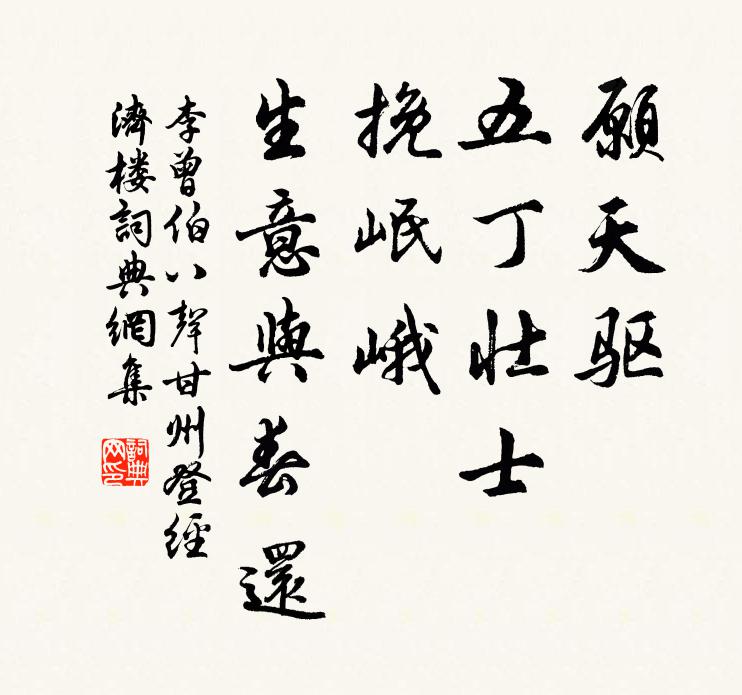 願天驱
五丁壮士
挽岷峨
生意與春還
李曾伯八聲甘州登經
濟楼詞典網集
詞典网印